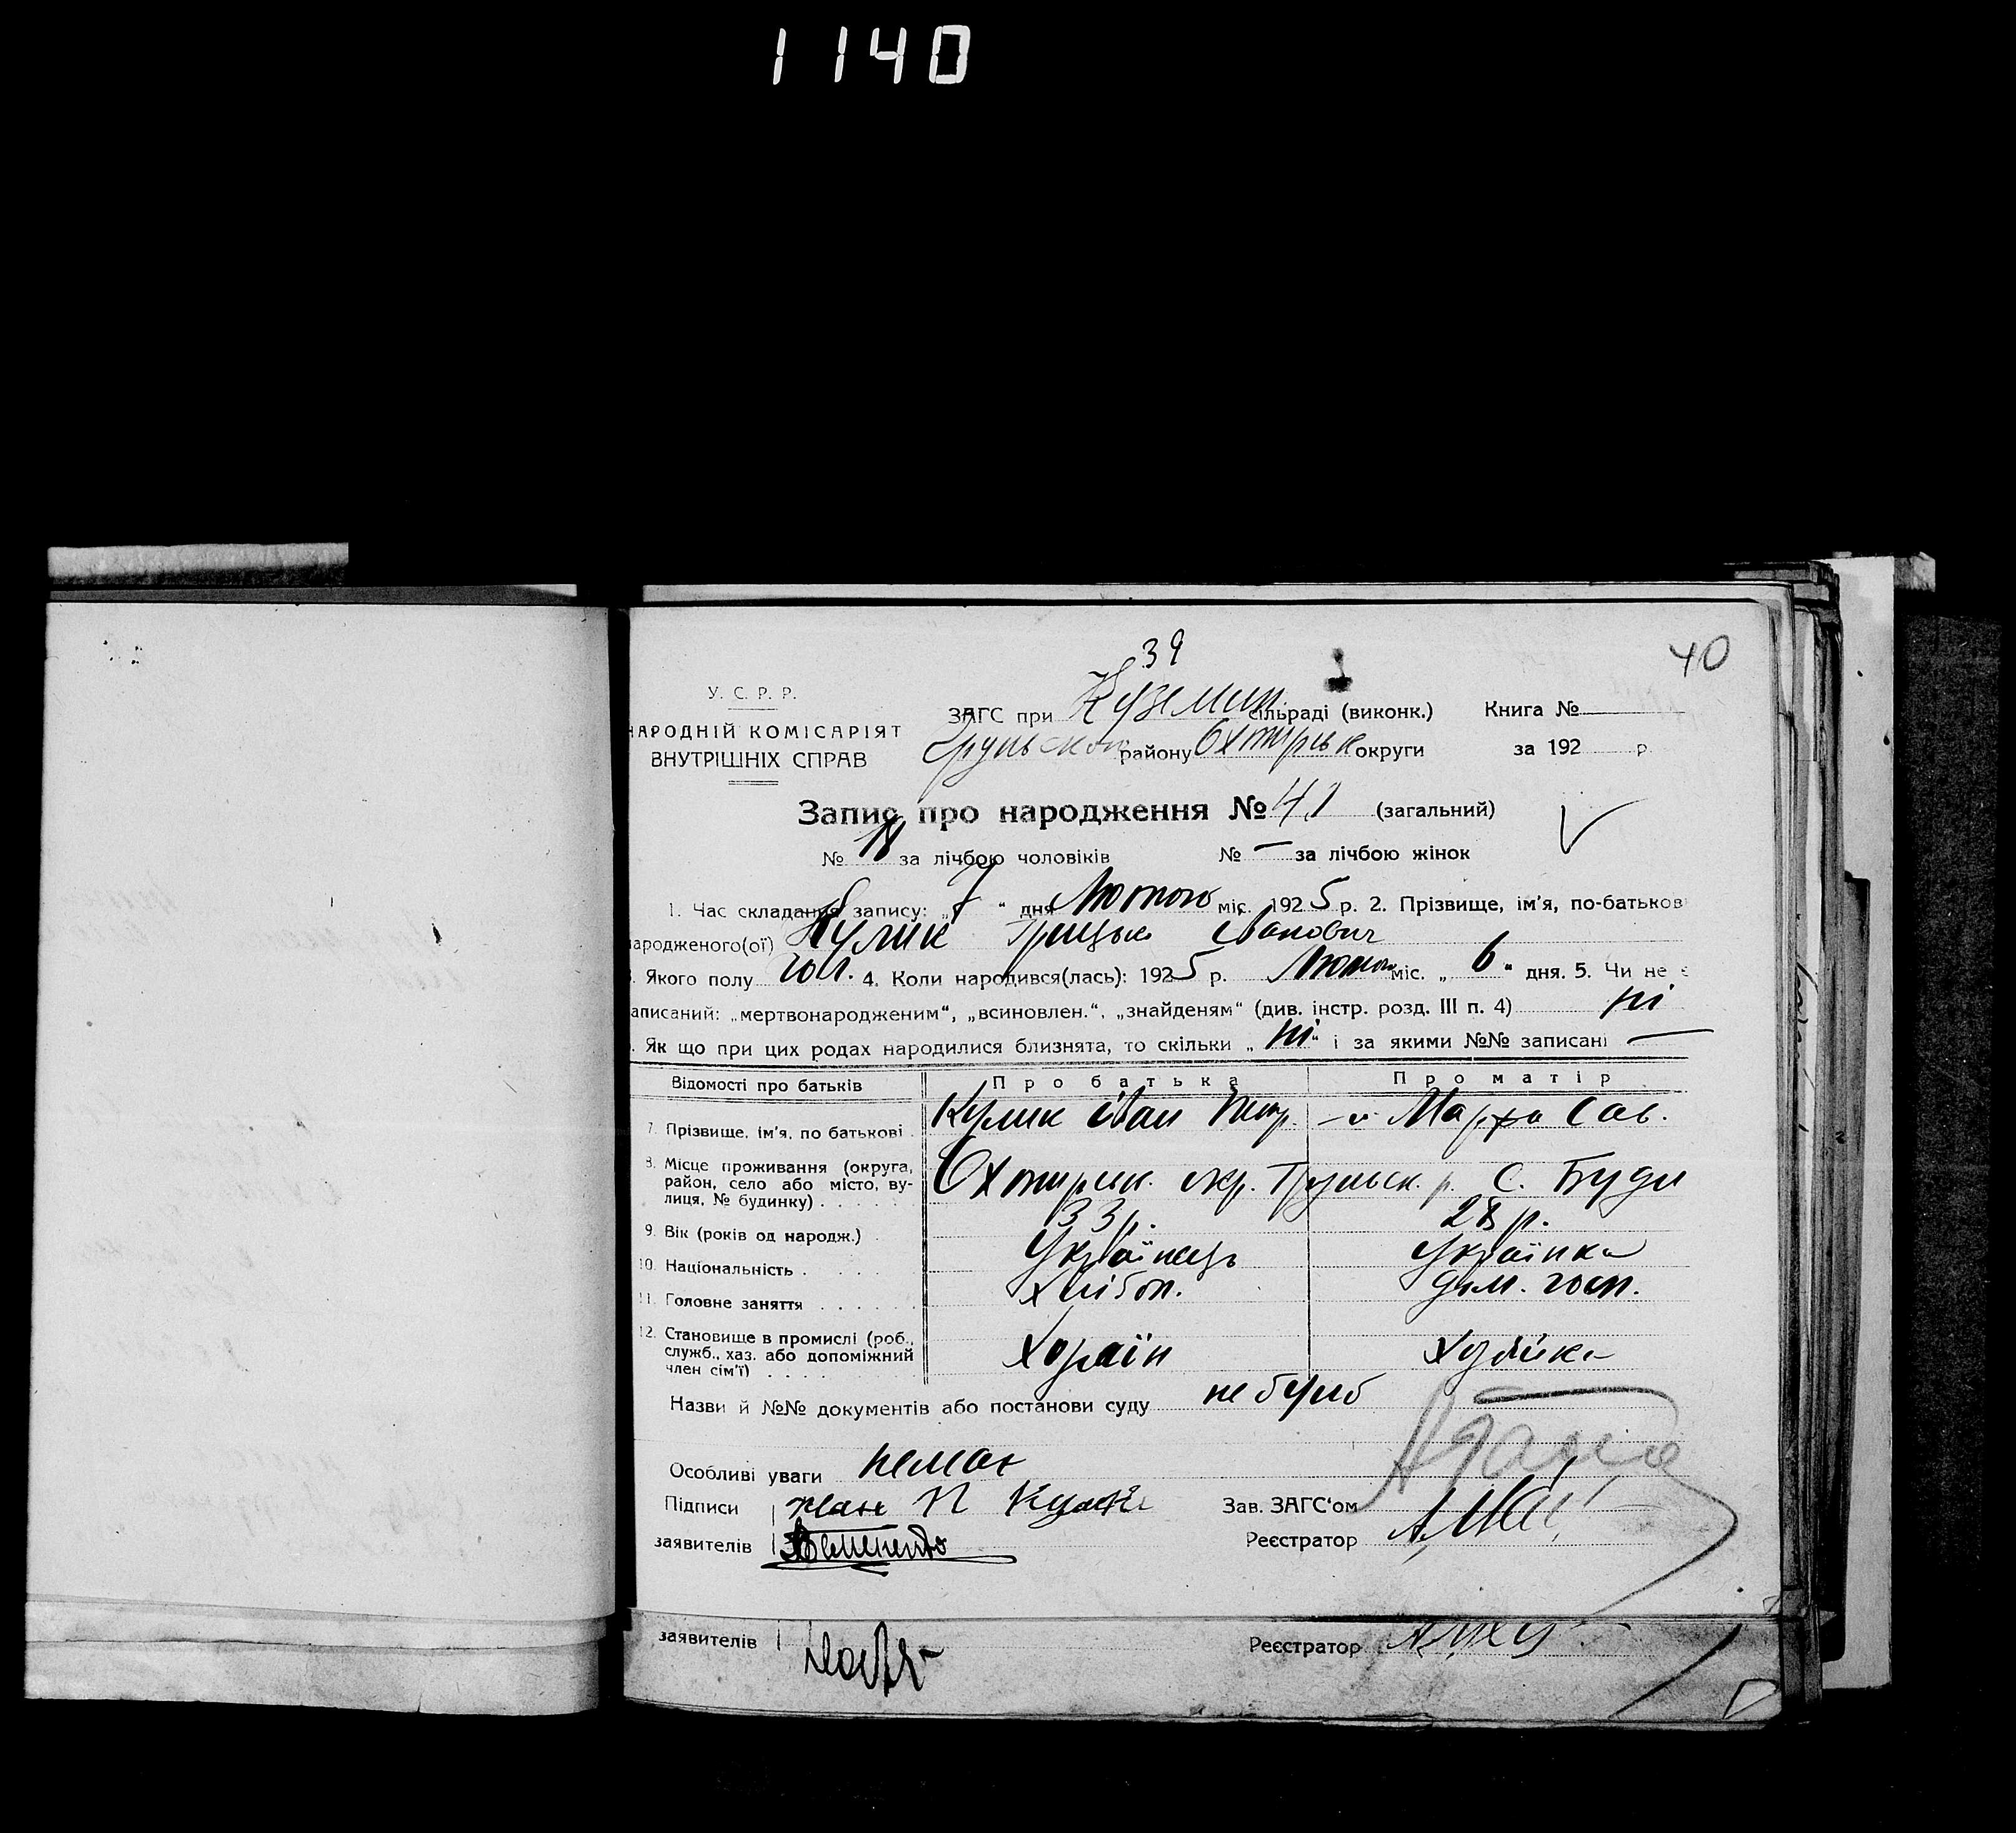 1140
39
40
У. С. Р. Р.
НАРОДНІЙ КОМІСАРІЯТ
ВНУТРІШНІХ СПРАВ
ЗАГС при Кузмин. сільраді (виконк.) Книга №
району Охтирськ округи за 192 р
Запис про народження № 41 (загальний)
№ за лічбою чоловіків № — за лічбою жінок
1. Час складання запису: „7" дня Лютого міс. 1925 р. 2. Прізвище, ім'я, по-батькові
народженого(ої) Кулик Грицько Іванович
3. Якого полу чол. 4. Коли народився(лась): 1925 р. Лютого міс. „ 6 " дня. 5. Чи не є
записаний: „мертвонародженим", „всиновлен.", „знайденям" (див. інстр. розд. III п. 4) ні
6. Як що при цих родах народилися близнята, то скільки „ ні " і за якими №№ записані —
Відомості про батьків Про батька Про матір
7. Прізвище, ім'я, по батькові Кулик Іван Петр. —" Марфа Сав.
8. Місце проживання (округа,
район, село або місто, ву-
лиця, № будинку) Охтирськ. окр. Грунськ. р. С. Буди
9. Вік (років од народж.) 33 р. 28 р.
10. Національність Українець Українка
11. Головне заняття Хлібоп. дом. госп.
12. Становище в промислі (роб.,
служб., хаз. або допоміжний
член сім'ї) Хозяїн Хозяйка
Назви й №№ документів або постанови суду не було
Особливі уваги немає
Підписи П Кулик Зав. ЗАГС'ом
заявителів Реєстратор
заявителів Реєстратор